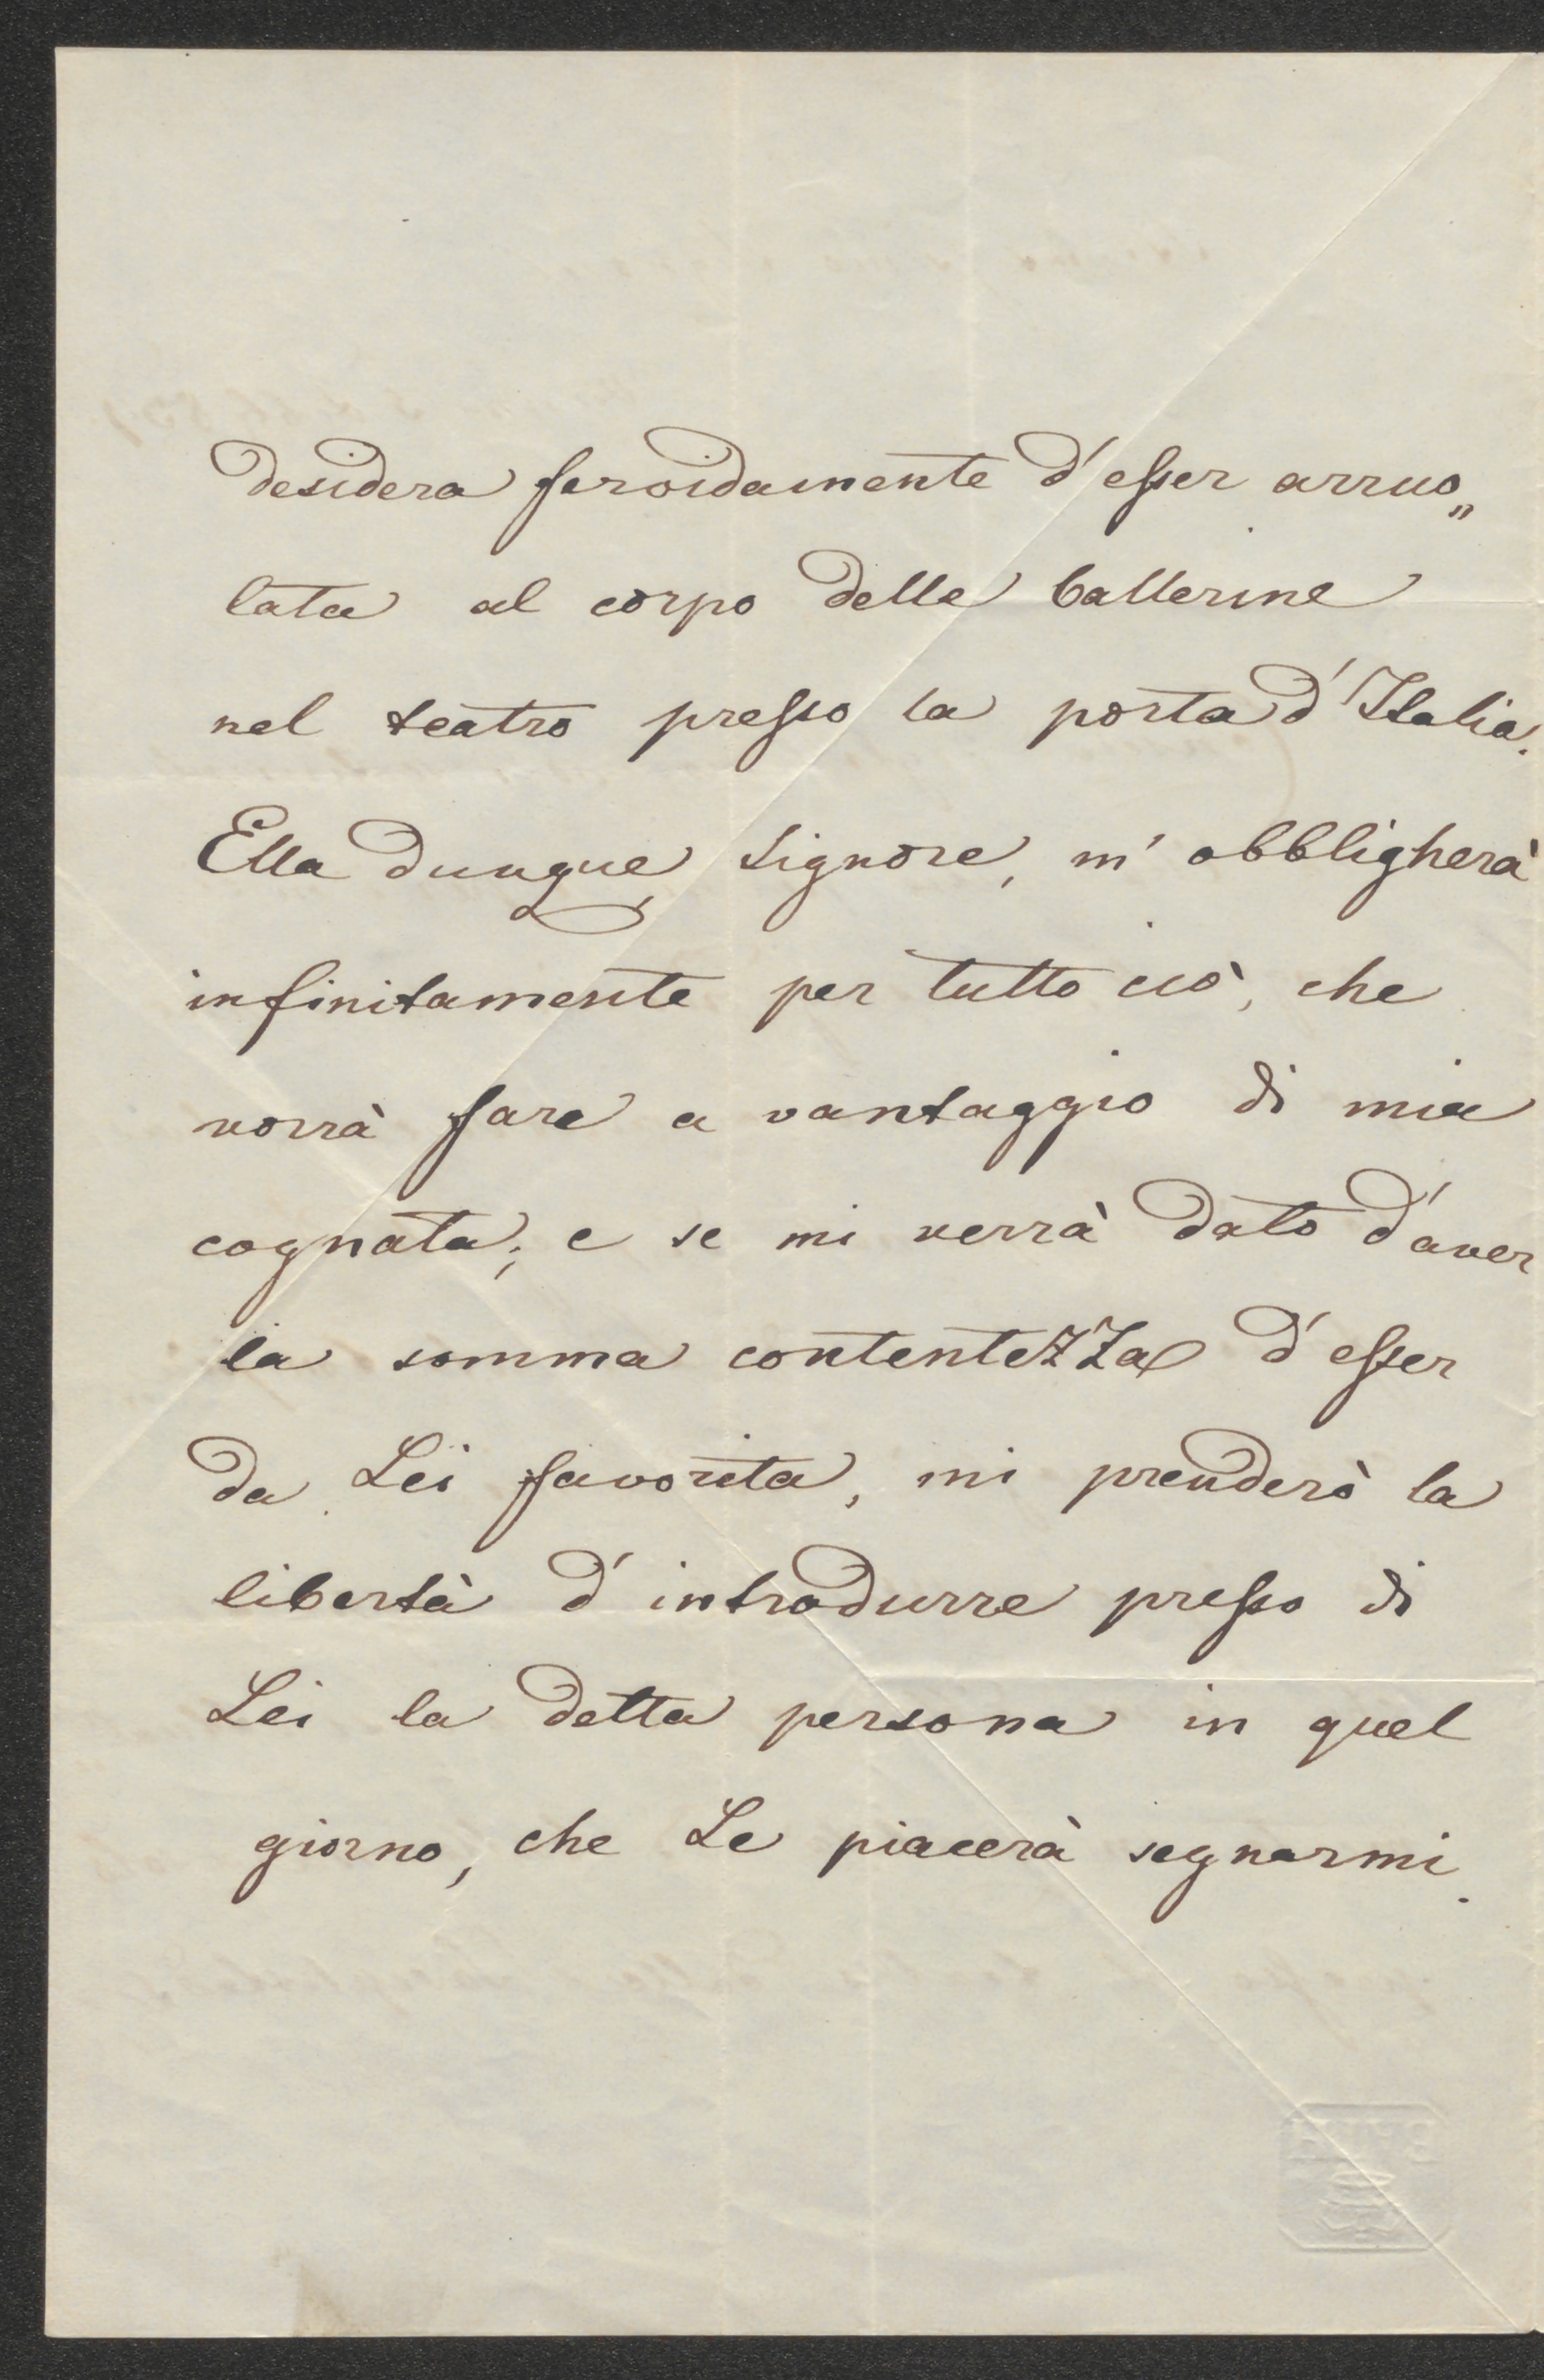 desidera fervidamente d'esser arruo„
lata al corpo delle ballerine
nel teatro presso la porta d'Italia.
Ella dunque, Signore, m'obbligherà
infinitamente per tutto ciò, che
vorrà fare a vantaggio di mia
cognata; e se mi verrà dato d'aver
la somma contentezza d'esser
da Lei favorita, mi prenderò la
libertà d'introdurre presso di
Lei la detta persona in quel
giorno, che Le piacerà segnarmi.
BATH